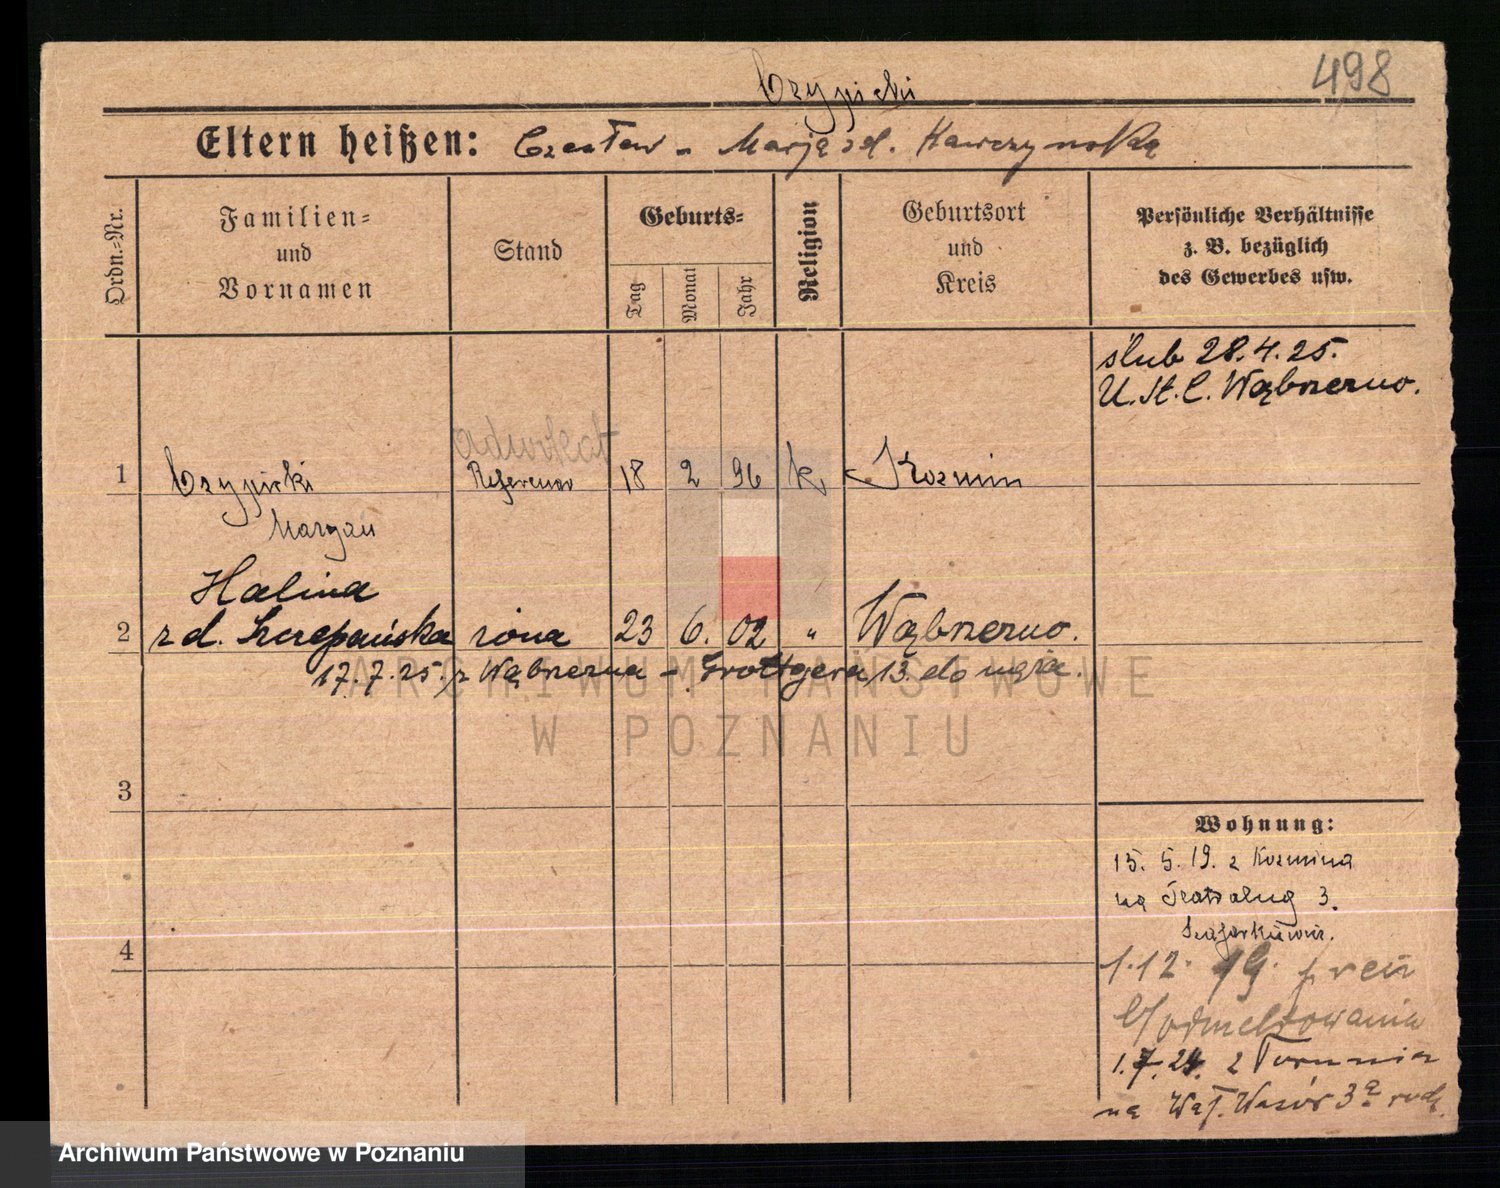 498
Czypicki
Eltern heißen: Czesław - Marja zd. Kawczyńską
Ordn.=Nr.
Familien=
und
Vornamen
Stand
Geburts=
Tag
Monat
Jahr
Religion
Geburtsort
und
Kreis
Persönliche Verhältnisse
z. B. bezüglich
des Gewerbes usw.
ślub 28.4.25.
U. St. C. Wąbrzezno.
adwokat
1 Czypicki Referendar 18 2 96 k Kozmin
Marjan
Halina
2 z d. Szczepańska żona 23 6. 02 " Wąbrzezno.
17.7.25. z Wąbrzezna - Grottgera 13. do męża.
3
4
Wohnung:
15. 5. 19. z Kozmina
na Teatralną 3.
1.12. 19.
odmeldowania
1.7.24. z Torunia
na Wał. Wazów 3a
ARCHIWUM PAŃSTWOWE
W POZNANIU
Archiwum Państwowe w Poznaniu